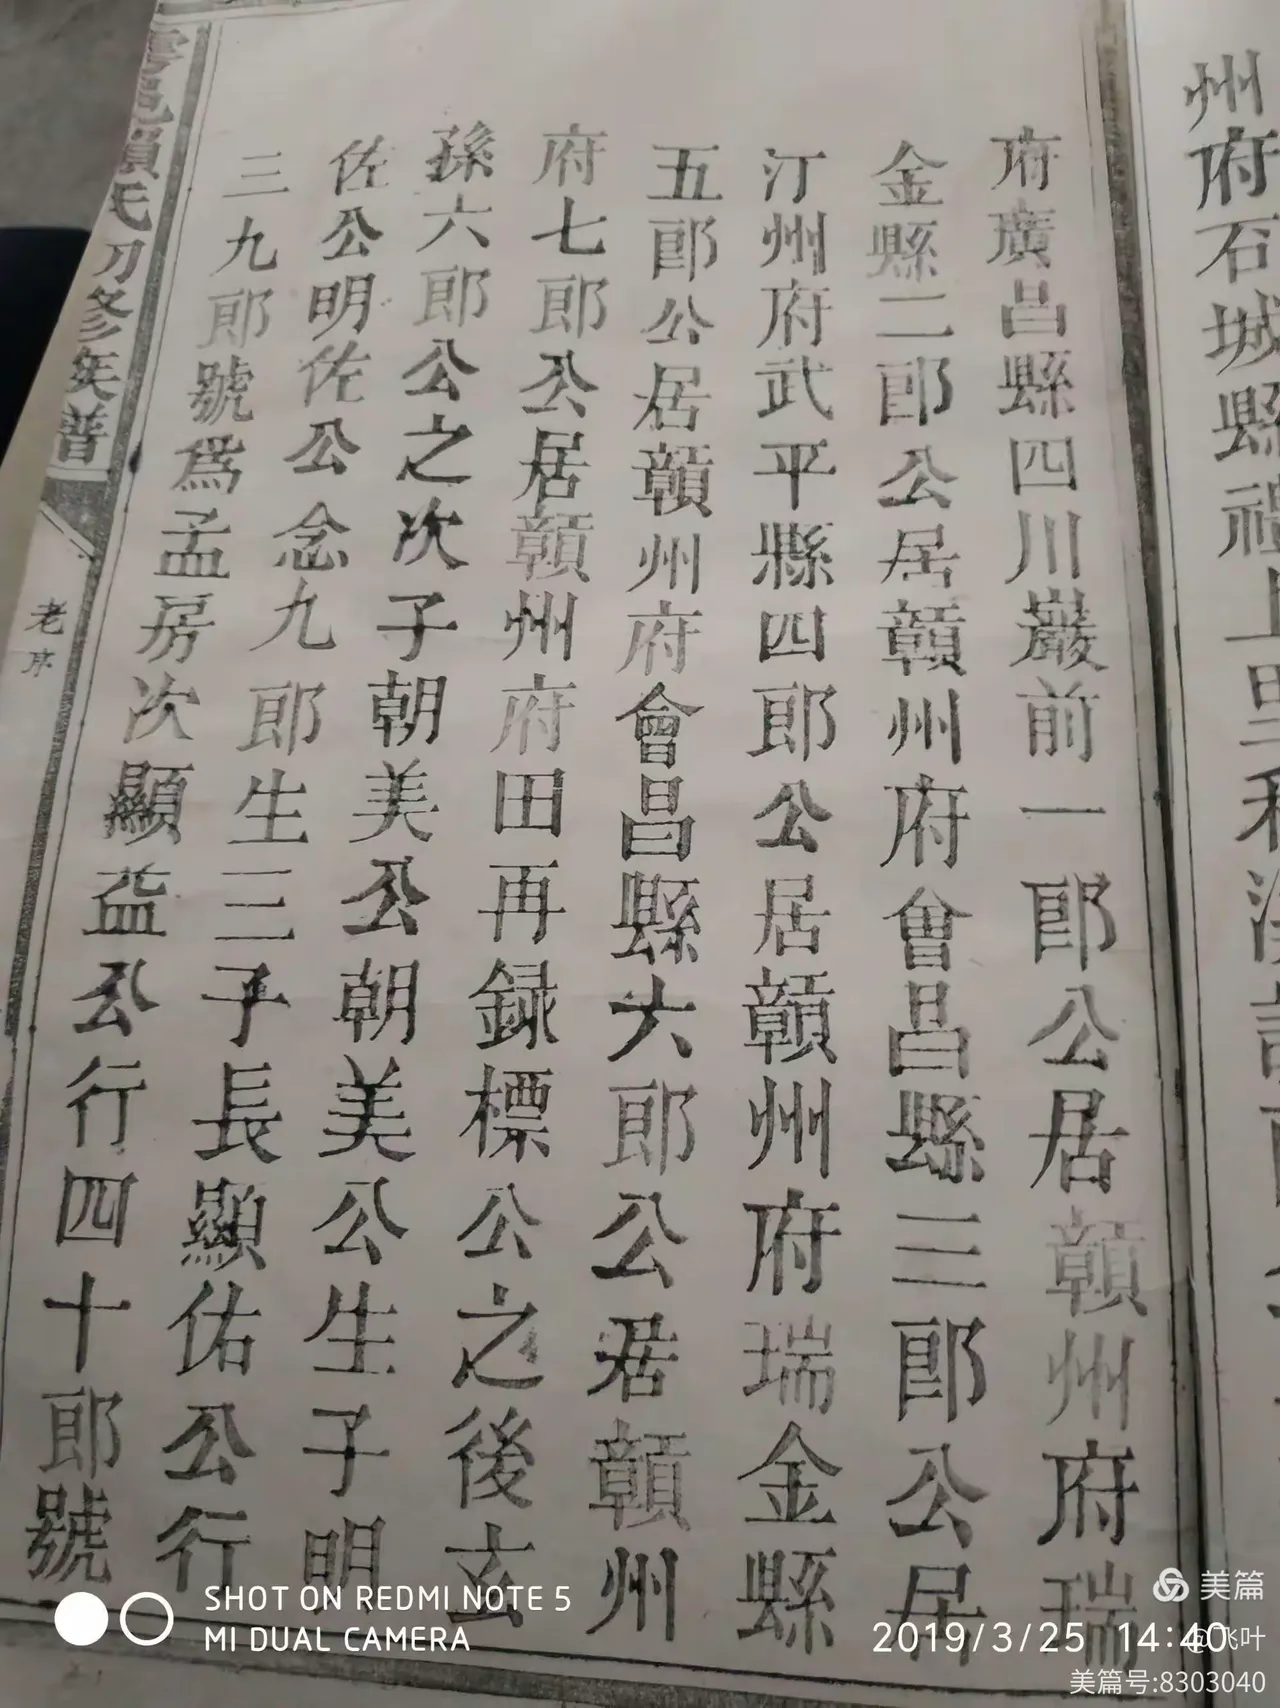 州府石城縣
府廣昌縣四川巖前一郎公居贛州府瑞
金縣二郎公居贛州府會昌縣三郎公居
汀州府武平縣四郎公居贛州府瑞金縣
五郎公居贛州府會昌縣六郎公居贛州
府七郎公居贛州府田再録標公之後玄
孫六郎公之次子朝美公朝美公生子明
佐公明佐公念九郎生三子長顯佑公行
三九郎號爲孟房次顯益公行四十郎號
雩邑賴氏刀修族普
老序
SHOT ON REDMI NOTE 5
MI DUAL CAMERA
2019/3/25 14:40
美篇
@飞叶
美篇号:8303040